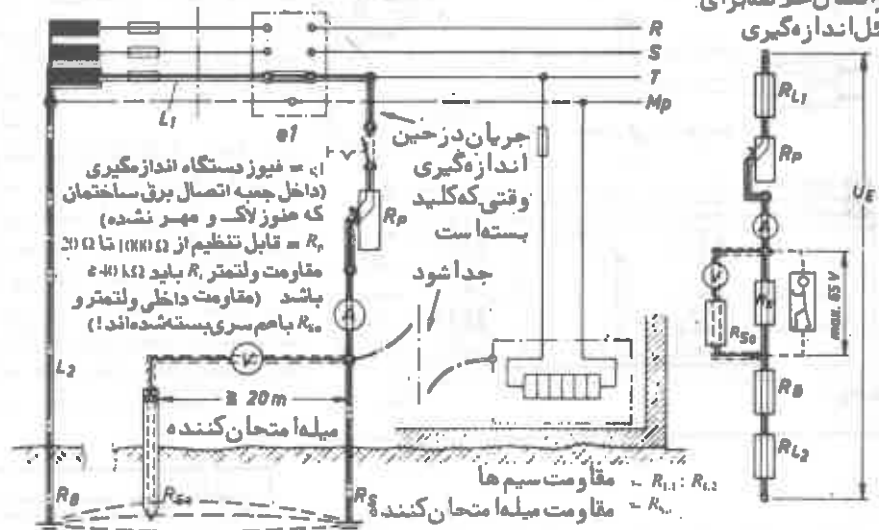 اندازه‌گیری
R
S
T
Mp
L1
e1
جریان درحین
اندازه گیری
وقتی که کلید
بسته است
جدا شود
e1 = فیوز دستگاه اندازه‌گیری
(داخل جعبه اتصال برق ساختمان
که هنوز لاک و مهر نشده)
Rp = قابل تنظیم از 1000 Ω تا 20 Ω
مقاومت ولتمتر Ri باید ≥ 40 kΩ
باشد (مقاومت داخلی ولتمتر و
RSo باهم سری بسته شده‌اند!)
Rp
A
V
L2
≧ 20 m
میله امتحان کننده
RB
RSo
RS
RL1 ; RL2 = مقاومت سیم ها
RSo = مقاومت میله امتحان کننده
RL1
Rp
A
UE
V
RSo
RS
max. 65 V
RB
RL2